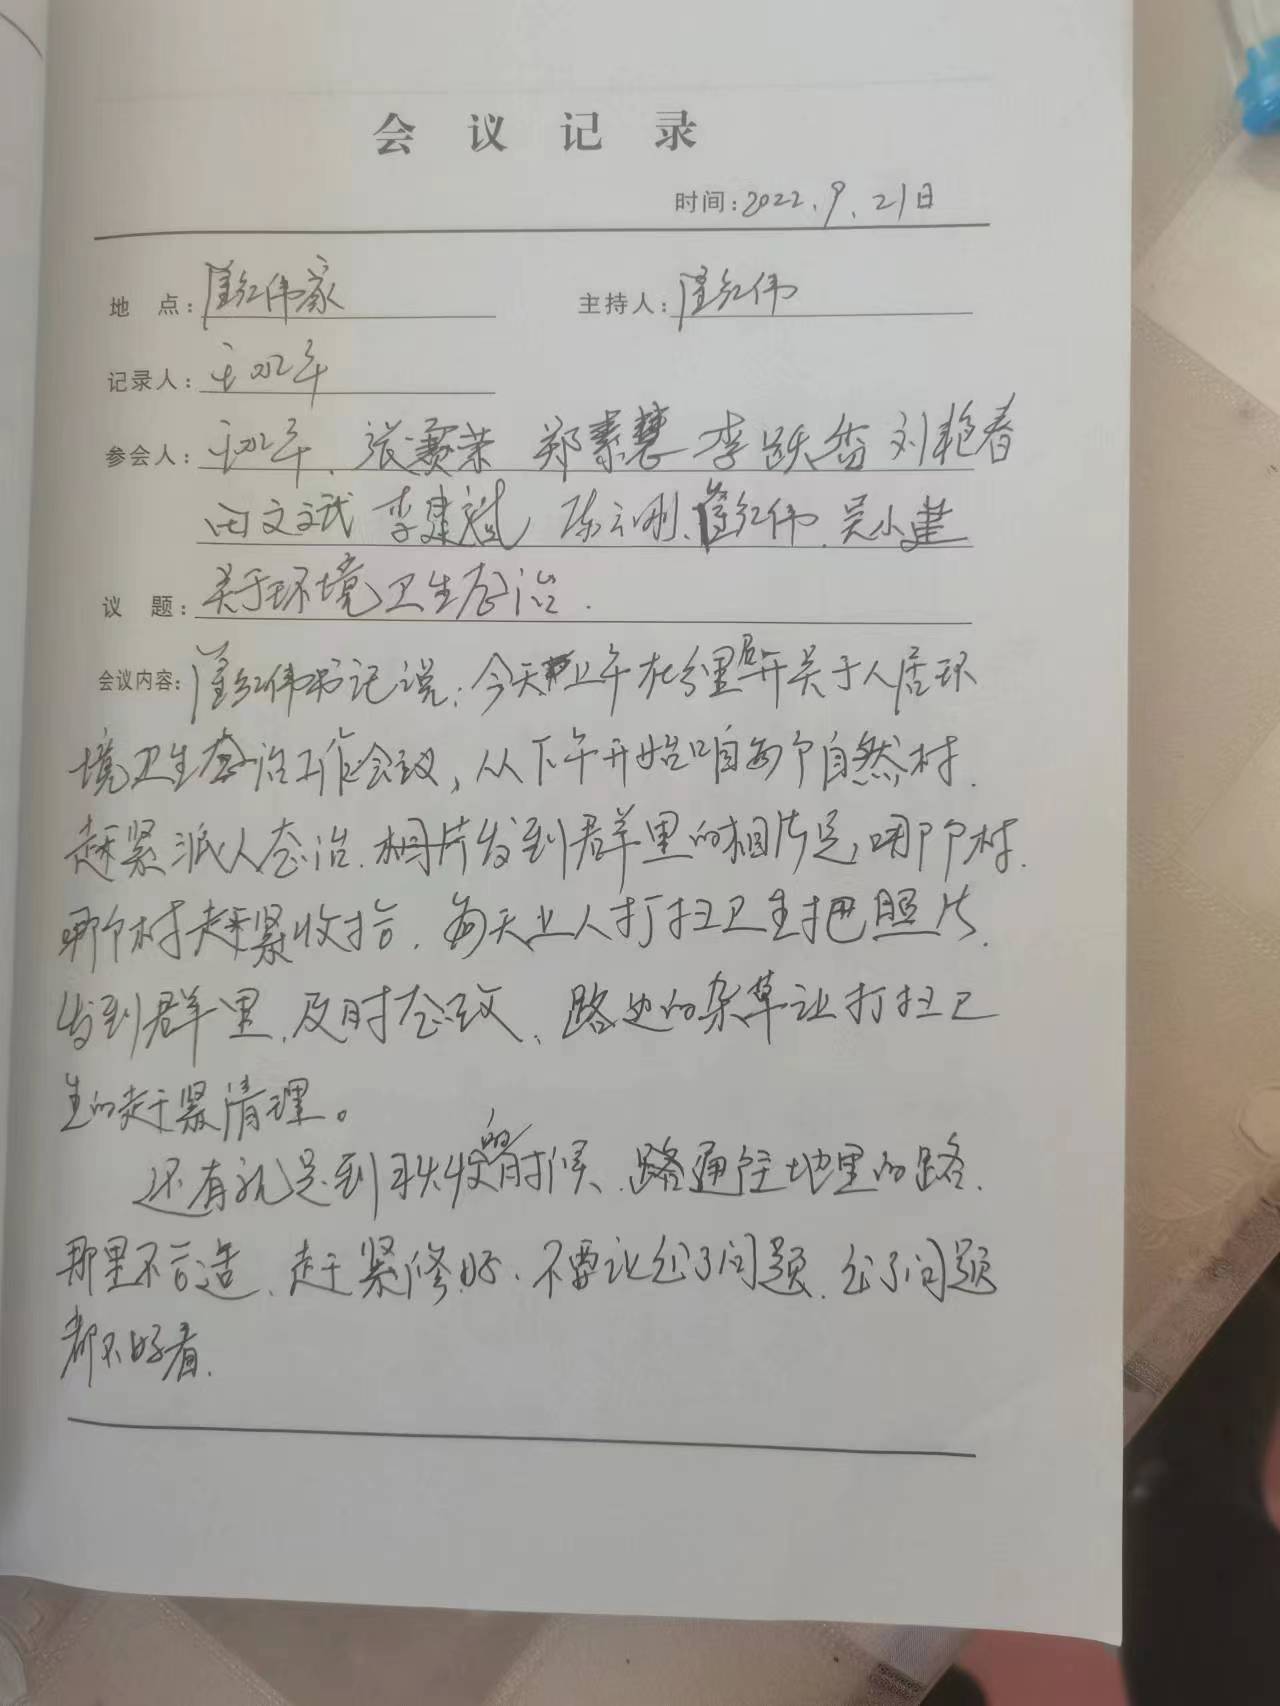 会议记录
时间：2022.9.21日
地 点：红伟家
主持人：红伟
记录人：
参会人：张赛荣 郑素慧 李跃 刘艳春
田文斌 李建斌 陈云刚、红伟、吴小建
议 题：关于环境卫生治.
会议内容：红伟书记说：今天上午在乡里召开关于人居环
境卫生治工作会议，从下午开始咱每个自然村.
赶紧派人治.相片发到群里的相片是,哪个村.
哪个村赶紧收拾.每天人打扫卫生把照片.
发到群里.及时改、路边的杂草让打扫卫
生的赶紧清理。
还有就是到秋收的时候.路通往地里的路.
那里不合适.赶紧修好.不要让出了问题.出了问题
都不好看.